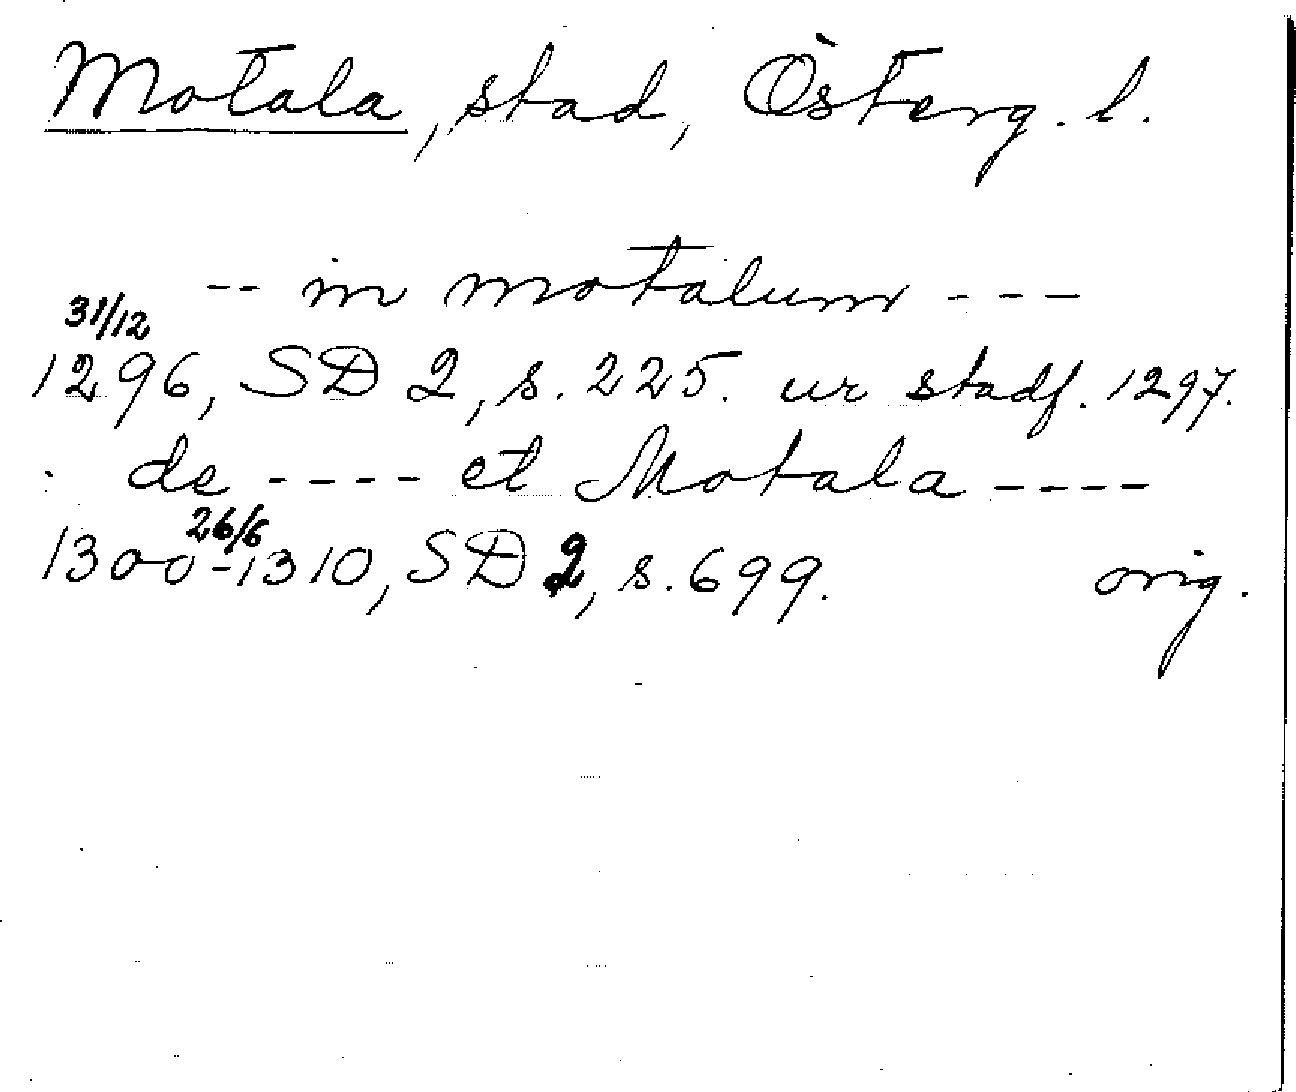 Motala, stad, Österg. l.
-- in motalum ---
31/12
1296, SD 2, s. 225. ur stadf. 1297.
de ---- et Motala ----
26/6
1300-1310, SD 2, s. 699. orig.